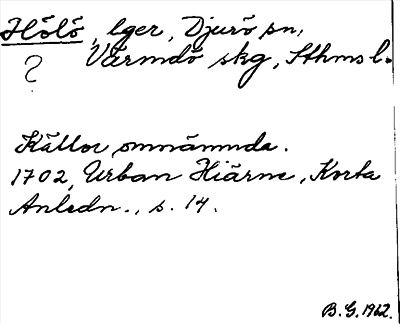 Hölö, lger, Djurö sn,
? Värmdö skg, Sthms l.
Källor omnämnda.
1702, Urban Hiärne, Korta
Anledn., s. 14.
B.G. 1962.